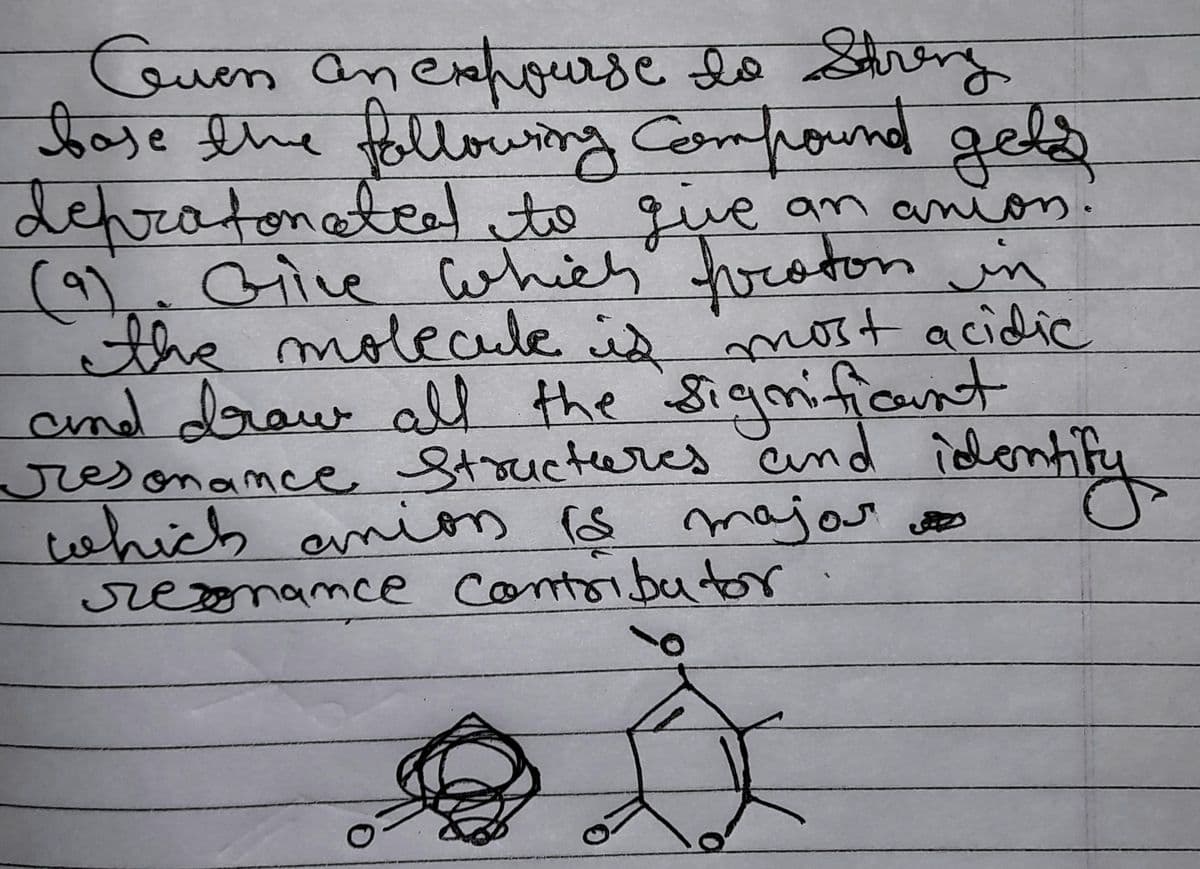 Cuven an exhpourse to Streng
base the following Compound gets
depratonated to give an anion.
(a). Give which proton in
the molecule is most acidic
and draw all the significant
resonance Structures and identify
which anion is major
resonance contributor.
O
O
O
O